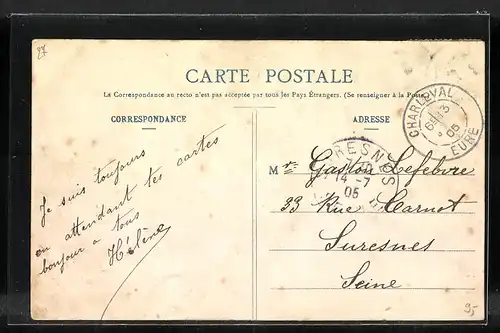 27
CARTE POSTALE
La Correspondance au recto n'est pas acceptée par tous les Pays Étrangers. (Se renseigner à la Poste.)
CORRESPONDANCE
ADRESSE
CHARLEVAL
EURE
05
Je suis toujours
en attendant tes cartes
bonjour a tous
Hélène
RESNES
14-7
05
Mr Gaston Lefebvre
33 Rue Carnot
Suresnes
Seine
95-